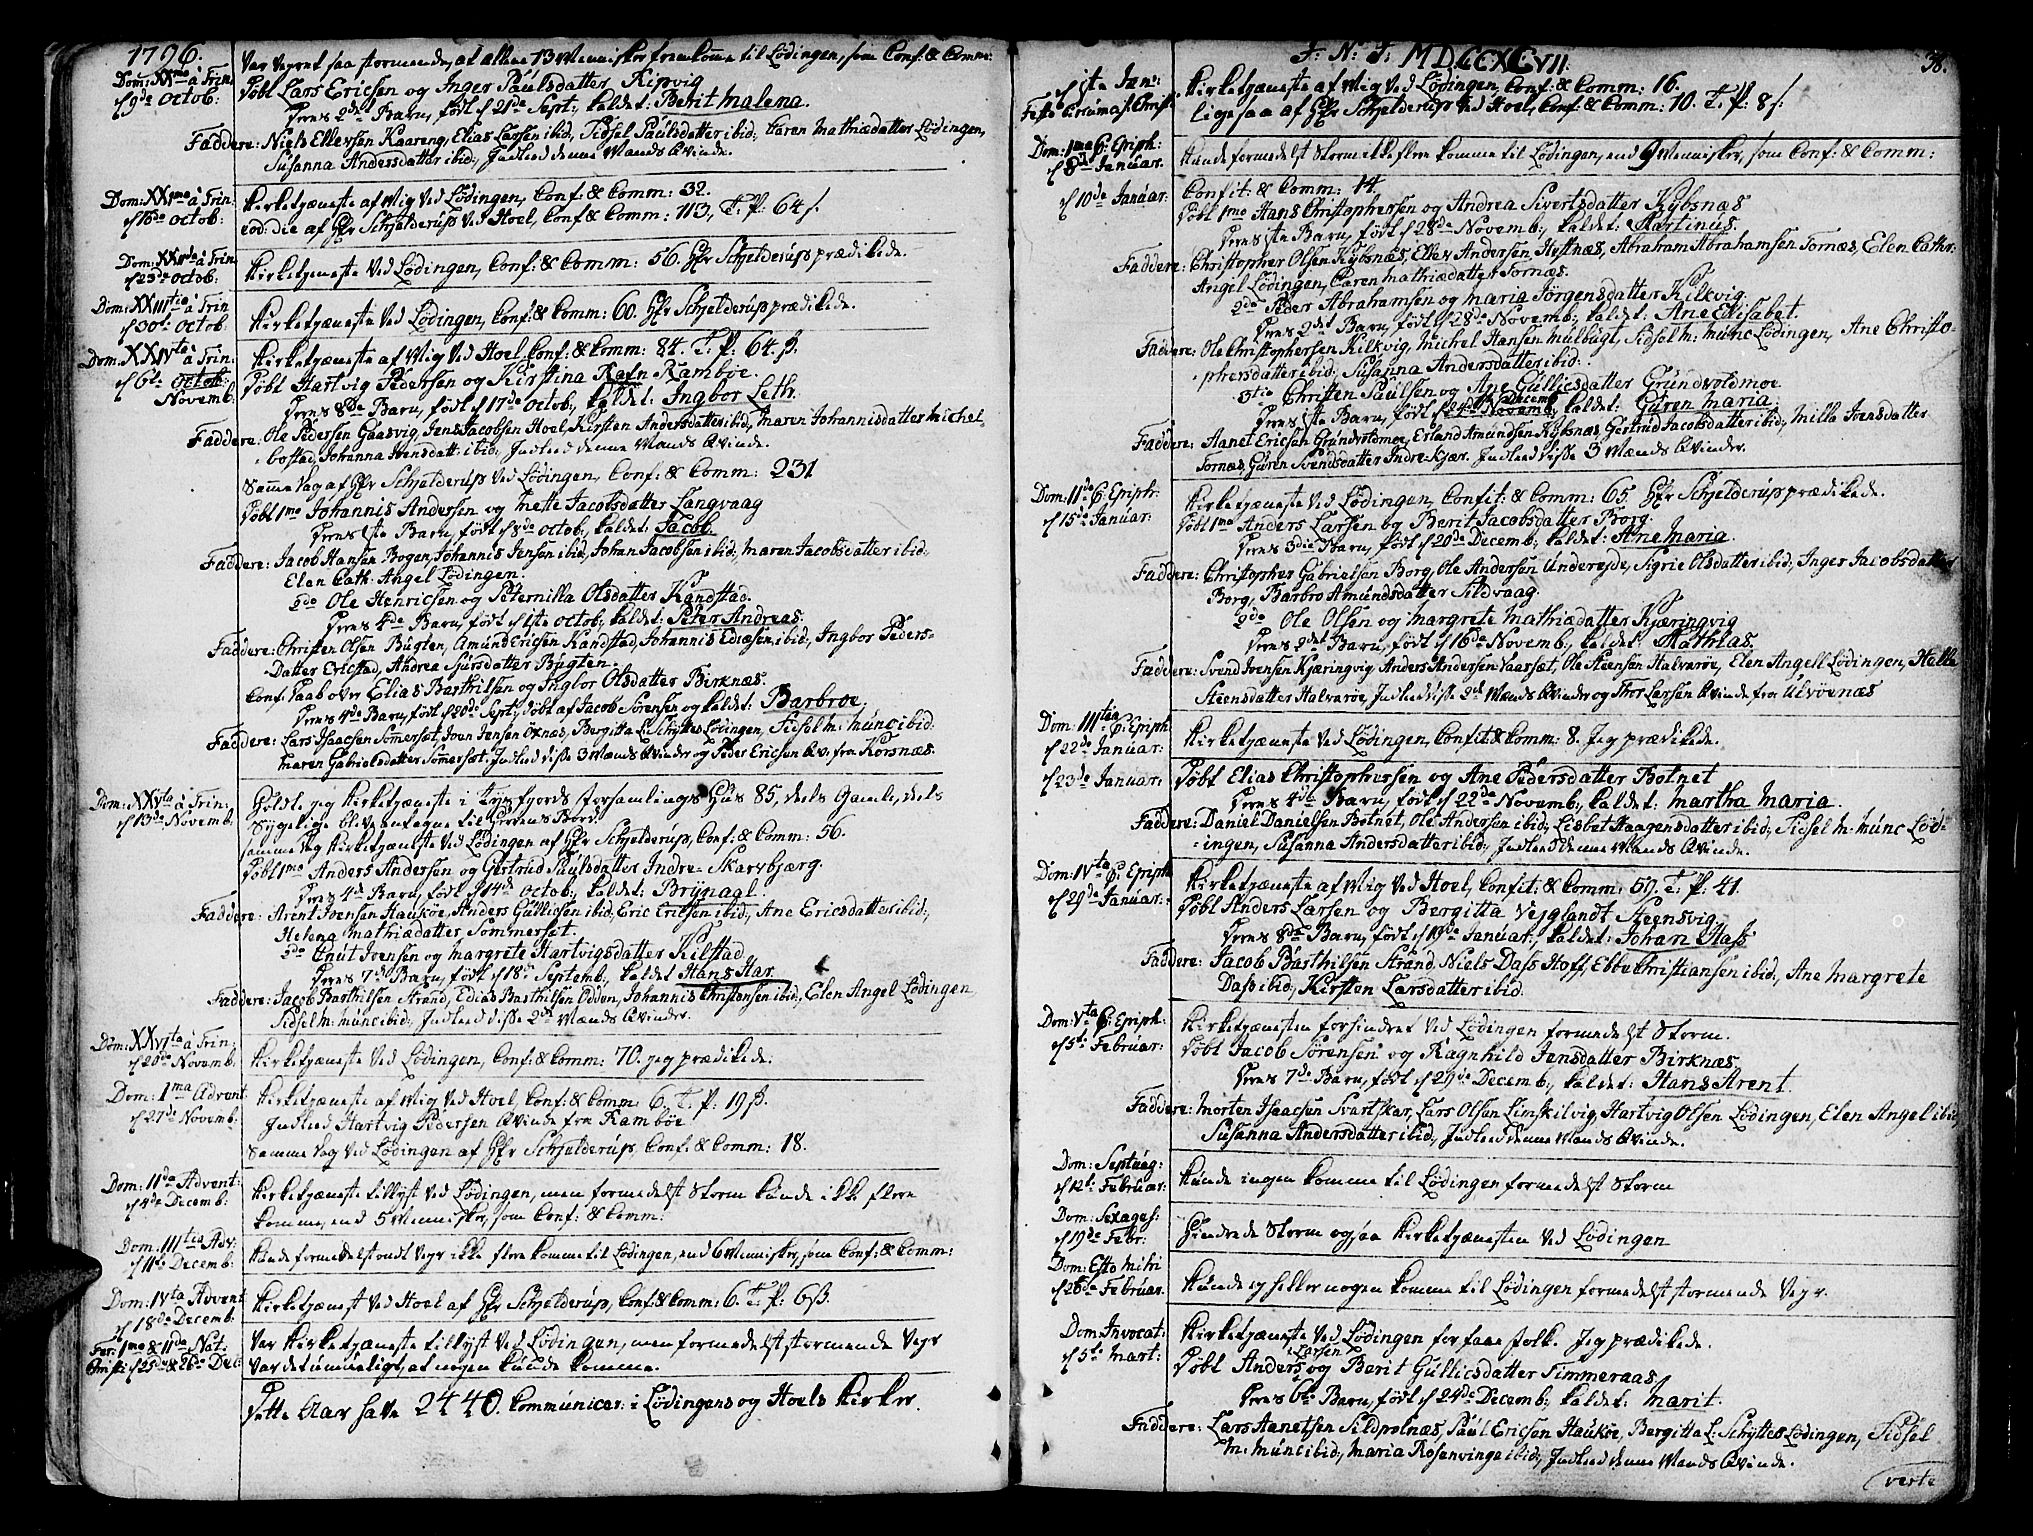 1796.
Dom: XXmo à Trin:
d 9de Octob:
Var Veyret saa stormende, at alene 13 Mennisker fremkomme til Lödingen, som Conf: & Comm:
Döbt Lars Ericsen og Inger Paulsdatter Kipvig
Deres 2det Barn, födt d 21de Sept:, kaldet: Berit Malena.
Faddere: Niels Ellevsen Kaareng, Elias Larsen ibid:, Sidsel Paulsdatter ibid:, Caren Mathiædatter Lödingen,
Susanna Andersdatter ibid:, Indled denne Mands Qvinde.
Dom: XXImo à Trin:
d 16de Octob:
Kirketjæneste af Mig ved Lödingen, Conf: & Comm: 32.
eod: die af Hr Schjelderup ved Hoel, Conf: & Comm: 113, T. P: 64 s.
Dom: XXIIde à Trin:
d 23de Octob:
Kirketjeneste ved Lödingen, Conf: & Comm: 56. Hr Schjelderup prædikede.
Dom: XXIIItia à Trin
d 30de Octob:
Kirketjæneste ved Lödingen, Conf: & Comm: 60. Hr Schjelderup prædikede.
Dom: XXIVta à Trin:
d 6te Octob:
Novemb:
Kirketjæneste af Mig ved Hoel Conf: & Comm: 84. T. P: 64 s.
Döbt Hartvig Pedersen og Kirstina Rafn Ramböe.
Deres 8de Barn, födt d 17de Octob:, kaldet: Ingbor Leth.
Faddere: Ole Pedersen Gaasvig, Jens Jacobsen Hoel, Kirsten Andersdatter ibid:, Maren Johannisdatter Michel-
bostad, Johanna Hensdatt: ibid:, Indled denne Mands Qvinde.
Samme Dag af Hr Schjelderup ved Lödingen, Conf: & Comm: 231
Döbt 1mo Johannis Andersen og Mette Jacobsdatter Langvaag
Deres 1ste Barn, födt d 8de Octob:, kaldet: Jacob.
Faddere: Jacob Hansen Bogen, Johannis Jensen ibid:, Johan Jacobsen ibid:, Maren Jacobsdatter ibid:,
Elen Cath: Angel Lödingen.
2do Ole Henricsen og Peternilla Olsdatter Kanstad.
Deres 4de Barn, födt d 1ste Octob:, kaldet: Peter Andreas.
Faddere: Christen Olsen Bugten, Amund Ericsen Kandstad, Johannis Ediæsen ibid:, Ingbor Peders-
Datter Ericstad, Andrea Sjursdatter Bugten.
Conf: Daab over Elias Barthilsen og Ingbor Olsdatter Birknæs.
Deres 4de Barn, födt d 20de Sept:, döbt af Jacob Sörensen og kaldet: Barbroe.
Faddere: Lars Isaacsen Sommerset, Iven Jensen Oxnæs, Bergitta L: Schyttes Lödingen, Sidsel M: Munc ibid:
Maren Gabrielsdatter Somersæt. Indled disse 3 Mænds Qvinder og Peder Ericsen Qv: fra Korsnæs.
Dom: XXVta à Trin:
d 13de Novemb:
Holdte jeg Kirketjæneste i Tysfjords Forsamlings Hus 85, deels Gamle, deels
Sygelige bleve antagne til Herrens Bord.
samme Dag Kirketjæneste ved Lödingen af Hr Schjelderup, Conf: & Comm: 56.
Döbt 1mo Anders Andersen og Gertrud Paulsdatter Indre-Skarvbjærg.
Deres 4de Barn, födt d 14de Octob:, kaldet: Brynagl.
Faddere: Arent Joensen Haukoe, Anders Gullicsen ibid:, Eric Ericsen ibid:, Ane Ericsdatter ibid:,
Helena Mathiædatter Sommerset.
2do Cnut Ivensen og Margrete Hartvigsdatter Kilstad
Deres 7de Barn, födt d 18de Septemb:, kaldet Hans Har.
Faddere: Jacob Barthilsen Strand, Edias Barthilsen Odden, Johannis Christansen ibid:, Elen Angel Lödingen,
Sidsel M: Munc ibid:, Indled disse 2de Mænds Qvinder.
Dom: XXVIta à Trin:
d 20de Novemb:
Kirketjæneste ved Lödingen, Conf: & Comm: 70. jeg prædikede.
Dom: 1ma Advent
d 27de Novemb:
Kirketjæneste af Mig ved Hoel Conf: & Comm: 6. T. P: 19 s.
Indled Hartvig Pedersen Qvinde fra Ramböe
Samme Dag ved Lödingen af Hr Schjelderup, Conf: & Comm: 18.
Dom: IIda Advent:
d 4de Decemb:
Kirketjæneste tillyst ved Lödingen, men formedelst Storm kunde ikke flere
komme, end 5 Mennisker, som Conf: & Comm:
Dom: IIItia Adv:
d 11te Decemb:
Kunde formedelst ondt Veyr ikke flere komme til Lödingen, end 6 Mennisker, som Conf: & Comm:
Dom: IVta Advent
d 18de Decemb:
Kirketjænest ved Hoel af Hr Schjelderup, Conf: & Comm: 6. T. P: 6 s.
Fer: 1ma & IIda Nat:
Christi d 25de & 26de Dec:
Var Kirketjæneste tillyst ved Lödingen, men formedelst stormende Veyr
Var det umueligt, at nogen kunde komme.
Dette Aar have 2440. Communicer: i Lödingens og Hoels Kirker.
J: N: J: MDCCXCVII.
38.
d 1ste Jan:
Festo Circumcis: Christi
Kirketjæneste af Mig ved Lödingen, Conf: & Comm: 16.
ligesaa af Hr Schjelderup ved Hoel, Conf: & Comm: 10. T. P: 8 s.
Dom: 1ma p: Epiph:
d 8de Januar.
Kunde formedelst Storm ikke flere komme til Lödingen, end 9 Mennisker, som Conf: & Comm:
d 10de Januar:
Confit: & Comm: 14.
Döbt 1mo Hans Christophersen og Andrea Sivertsdatter Kybsnæs
Deres 1ste Barn, födt d 28de Novemb:, kaldet: Martinus.
Faddere: Christopher Olsen Kybsnæs, Eller Andersen Hustnæs, Abraham Abrahamsen Tornæs, Elen Cathr:
Angel Lödingen, Caren Mathiædatter Tornæs.
2do Peder Abrahamsen og Maria Jörgensdatter Kilkvig.
Deres 2det Barn, födt d 28de Novemb:, kaldet: Ane Elisabet.
Faddere: Ole Christophersen Kilkvig, Michel Hansen Mulbugt, Sidsel M: Munc Lödingen, Ane Christo-
phersdatter ibid:, Susanna Andersdatter ibid:
3tio Christen Paulsen og Ane Gullicsdatter Grundvoldmoe
Deres 1ste Barn, födt d 24de Novemb: Decemb:, kaldet: Guren Maria.
Faddere: Aanet Ericsen Grundvoldmoe, Erland Amundsen Kybsnæs, Gertrud Jacobsdatter ibid:, Milla Ivensdatter
Tornæs, Guren Svendsdatter Indre-Kjær. Indled disse 3 Mænds Qvinder.
Dom: IIda p: Epiphr:
d 15de Januar:
Kirketjæneste ved Lödingen, Confit: & Comm: 65. Hr Schjelderup prædikede.
Döbt 1mo Anders Larsen og Berit Jacobsdatter Borg.
Deres 3die Barn, födt d 20de Decemb:, kaldet: Ane Maria.
Faddere: Christopher Gabrielsen Borg, Ole Andersen Undereyde, Sigrie Olsdatter ibid:, Inger Jacobsdatter
Borg, Barbro Amundsdatter Sildvaag.
2do Ole Olsen og Margrete Mathiædatter Kjæringvig
Deres 2det Barn, födt d 16de Novemb:, kaldet: Mathias.
Faddere: Svend Ivensen Kjæringvig Anders Andersen Vaarsæt, Ole Steensen Halvaröe, Elen Angell Lödingen, Halle
Steensdatter Halvaröe, Indled disse 2de Mænds Qvinder og Thor Larsen Qvinde fra Ulvöenæs
Dom: IIItia p: Epiph:
d 22de Januar:
Kirketjæneste ved Lödingen, Confit: & Comm: 8. Jeg prædikede.
d 23de Januar:
Döbt Elias Christophersen og Ane Pedersdatter Botnet
Deres 4de Barn, födt d 22de Novemb:, kaldet: Martha Maria.
Faddere: Daniel Danielsen Botnet, Ole Andersen ibid:, Lisbet Haagensdatter ibid:, Sidsel M: Munc Löd-
ingen, Susanna Andersdatter ibid:, Indled denne Mands Qvinde.
Dom: IVta p: Epiph
d 29de Januar:
Kirketjæneste af Mig ved Hoel, Confit: & Comm: 59. T. P: 41.
Döbt Anders Larsen og Bergitta Vejglandt Steensvig,
Deres 8de Barn, födt d 19de Januar:, kaldet: Johan Dass
Faddere: Jacob Barthilsen Strand, Niels Dass Hoff, Ebbe Christiansen ibid:, Ane Margrete
Dass ibid:, Kirsten Larsdatter ibid:
Dom: Vta p: Epiph:
d 5te Februar:
Kirketjænesten forhindret ved Lödingen formedelst Storm.
Döbt Jacob Sörensen og Ragnhild Jensdatter Birknæs,
Deres 7de Barn, födt d 29de Decemb:, kaldet: Hans Arent.
Faddere: Morten Isaacsen Svartskar, Lars Olsen Limskilvig, Hartvig Olsen Lödingen, Elen Angel ibid:
Susanna Andersdatter ibid:, Indled denne Mands Qvinde.
Dom: Septuag:
d 12te Februar:
Kunde ingen komme til Lödingen formedelst Storm
Dom: Sexages:
d 19de Febr:
Hindrede Storm ogsaa Kirketjænesten ved Lödingen
Dom: Esto Mihi
d 26de Februar.
Kunde ey heller nogen komme til Lödingen formedelst stormende Veyr.
Dom: Invocat:
d 5te Mart:
Kirketjæneste ved Lödingen for faae Folk. Jeg prædikede.
Döbt Anders Larsen og Berit Gullicsdatter Timmeraas,
Deres 6te Barn, födt d 24de Decemb:, kaldet: Marit.
Faddere: Lars Aanetsen Sildpolnæs, Paul Ericsen Haukøe, Bergitta L: Schyttes Lödingen, Sidsel
M: Munc ibid:, Maria Rosenvinge ibid:, Indled denne Mands Qvinde.
verte